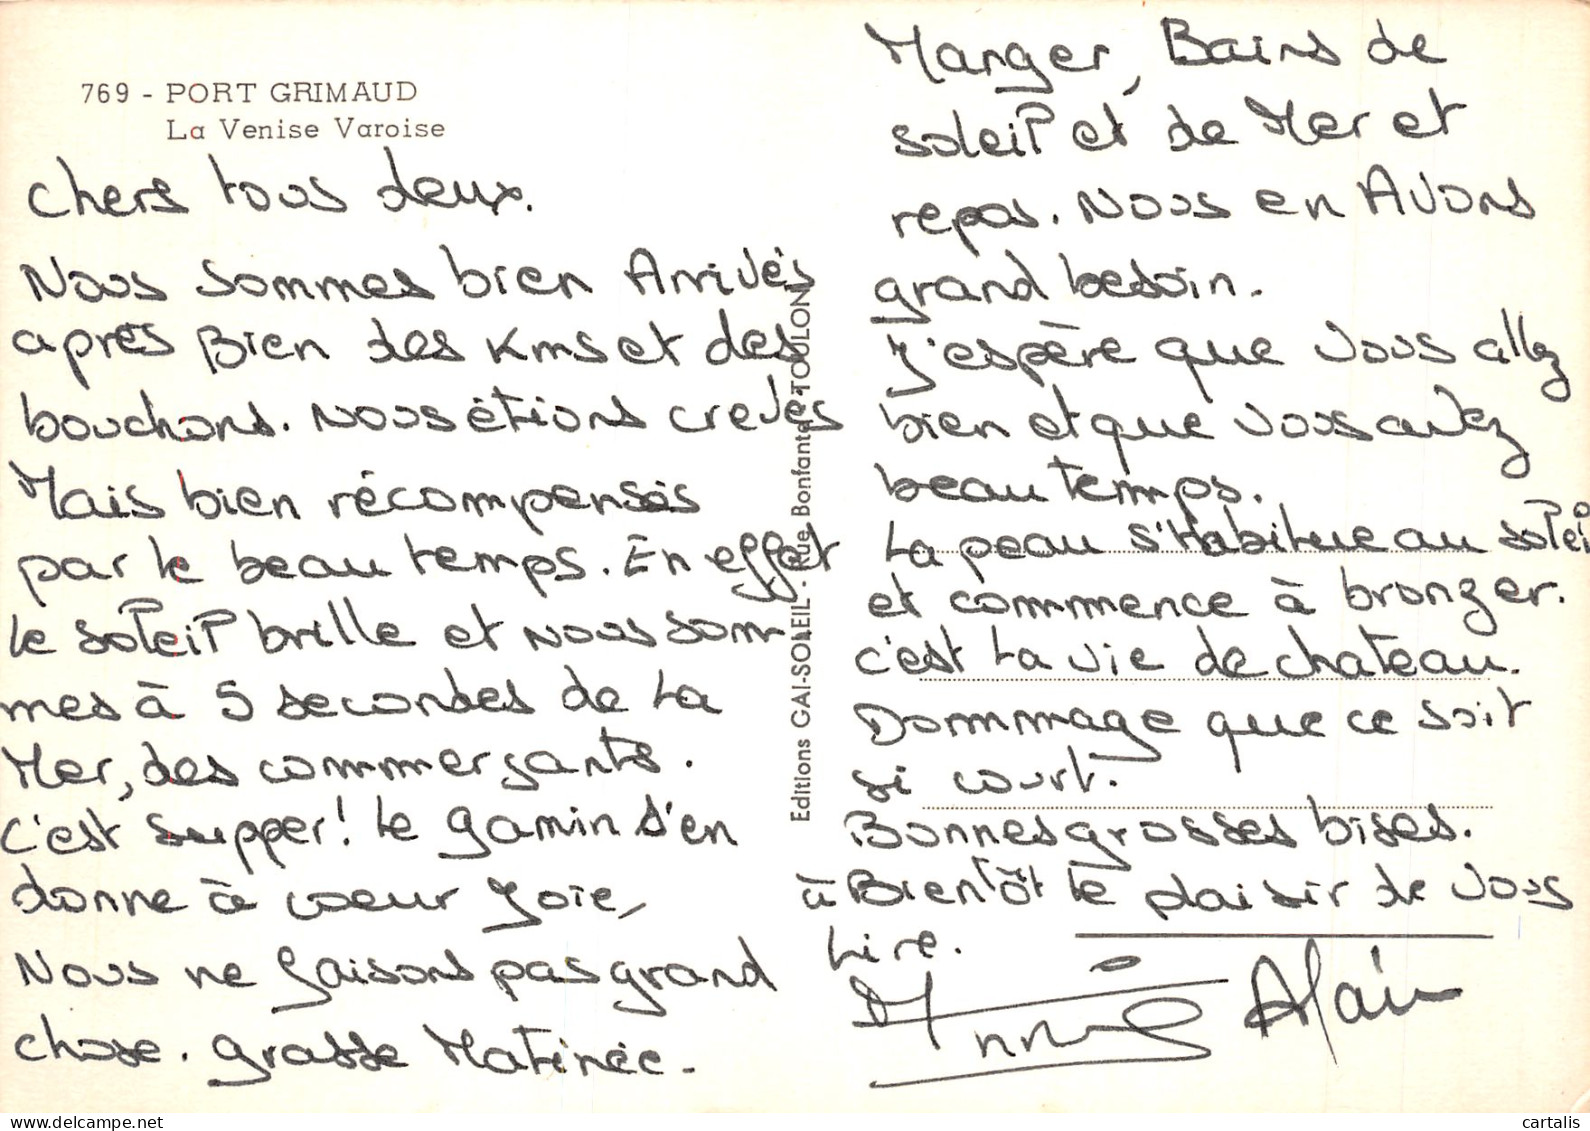 769 - PORT GRIMAUD
La Venise Varoise
Chers tous deux.
Nous sommes bien Arrivés
après Bien des Kms et des
bouchons. Nous étions crevés
Mais bien récompensés
par le beau temps. En effet
le soleil brille et nous som-
mes à 5 secondes de la
Mer, des commerçants.
C'est supper! le gamin s'en
donne à coeur Joie,
Nous ne faisons pas grand
chose. grasse Matinée.
Editions GAI-SOLEIL - Rue Bonfante TOULON
Manger, Bains de
soleil et de Mer et
repas. Nous en Avons
grand besoin.
J'espère que vous allez
bien et que vous avez
beau temps.
La peau s'habitue au soleil
et commence à bronzer.
C'est la vie de chateau.
Dommage que ce soit
si court.
Bonnes grosses bises.
à Bientôt le plaisir de vous
lire.
Alain
cartalis